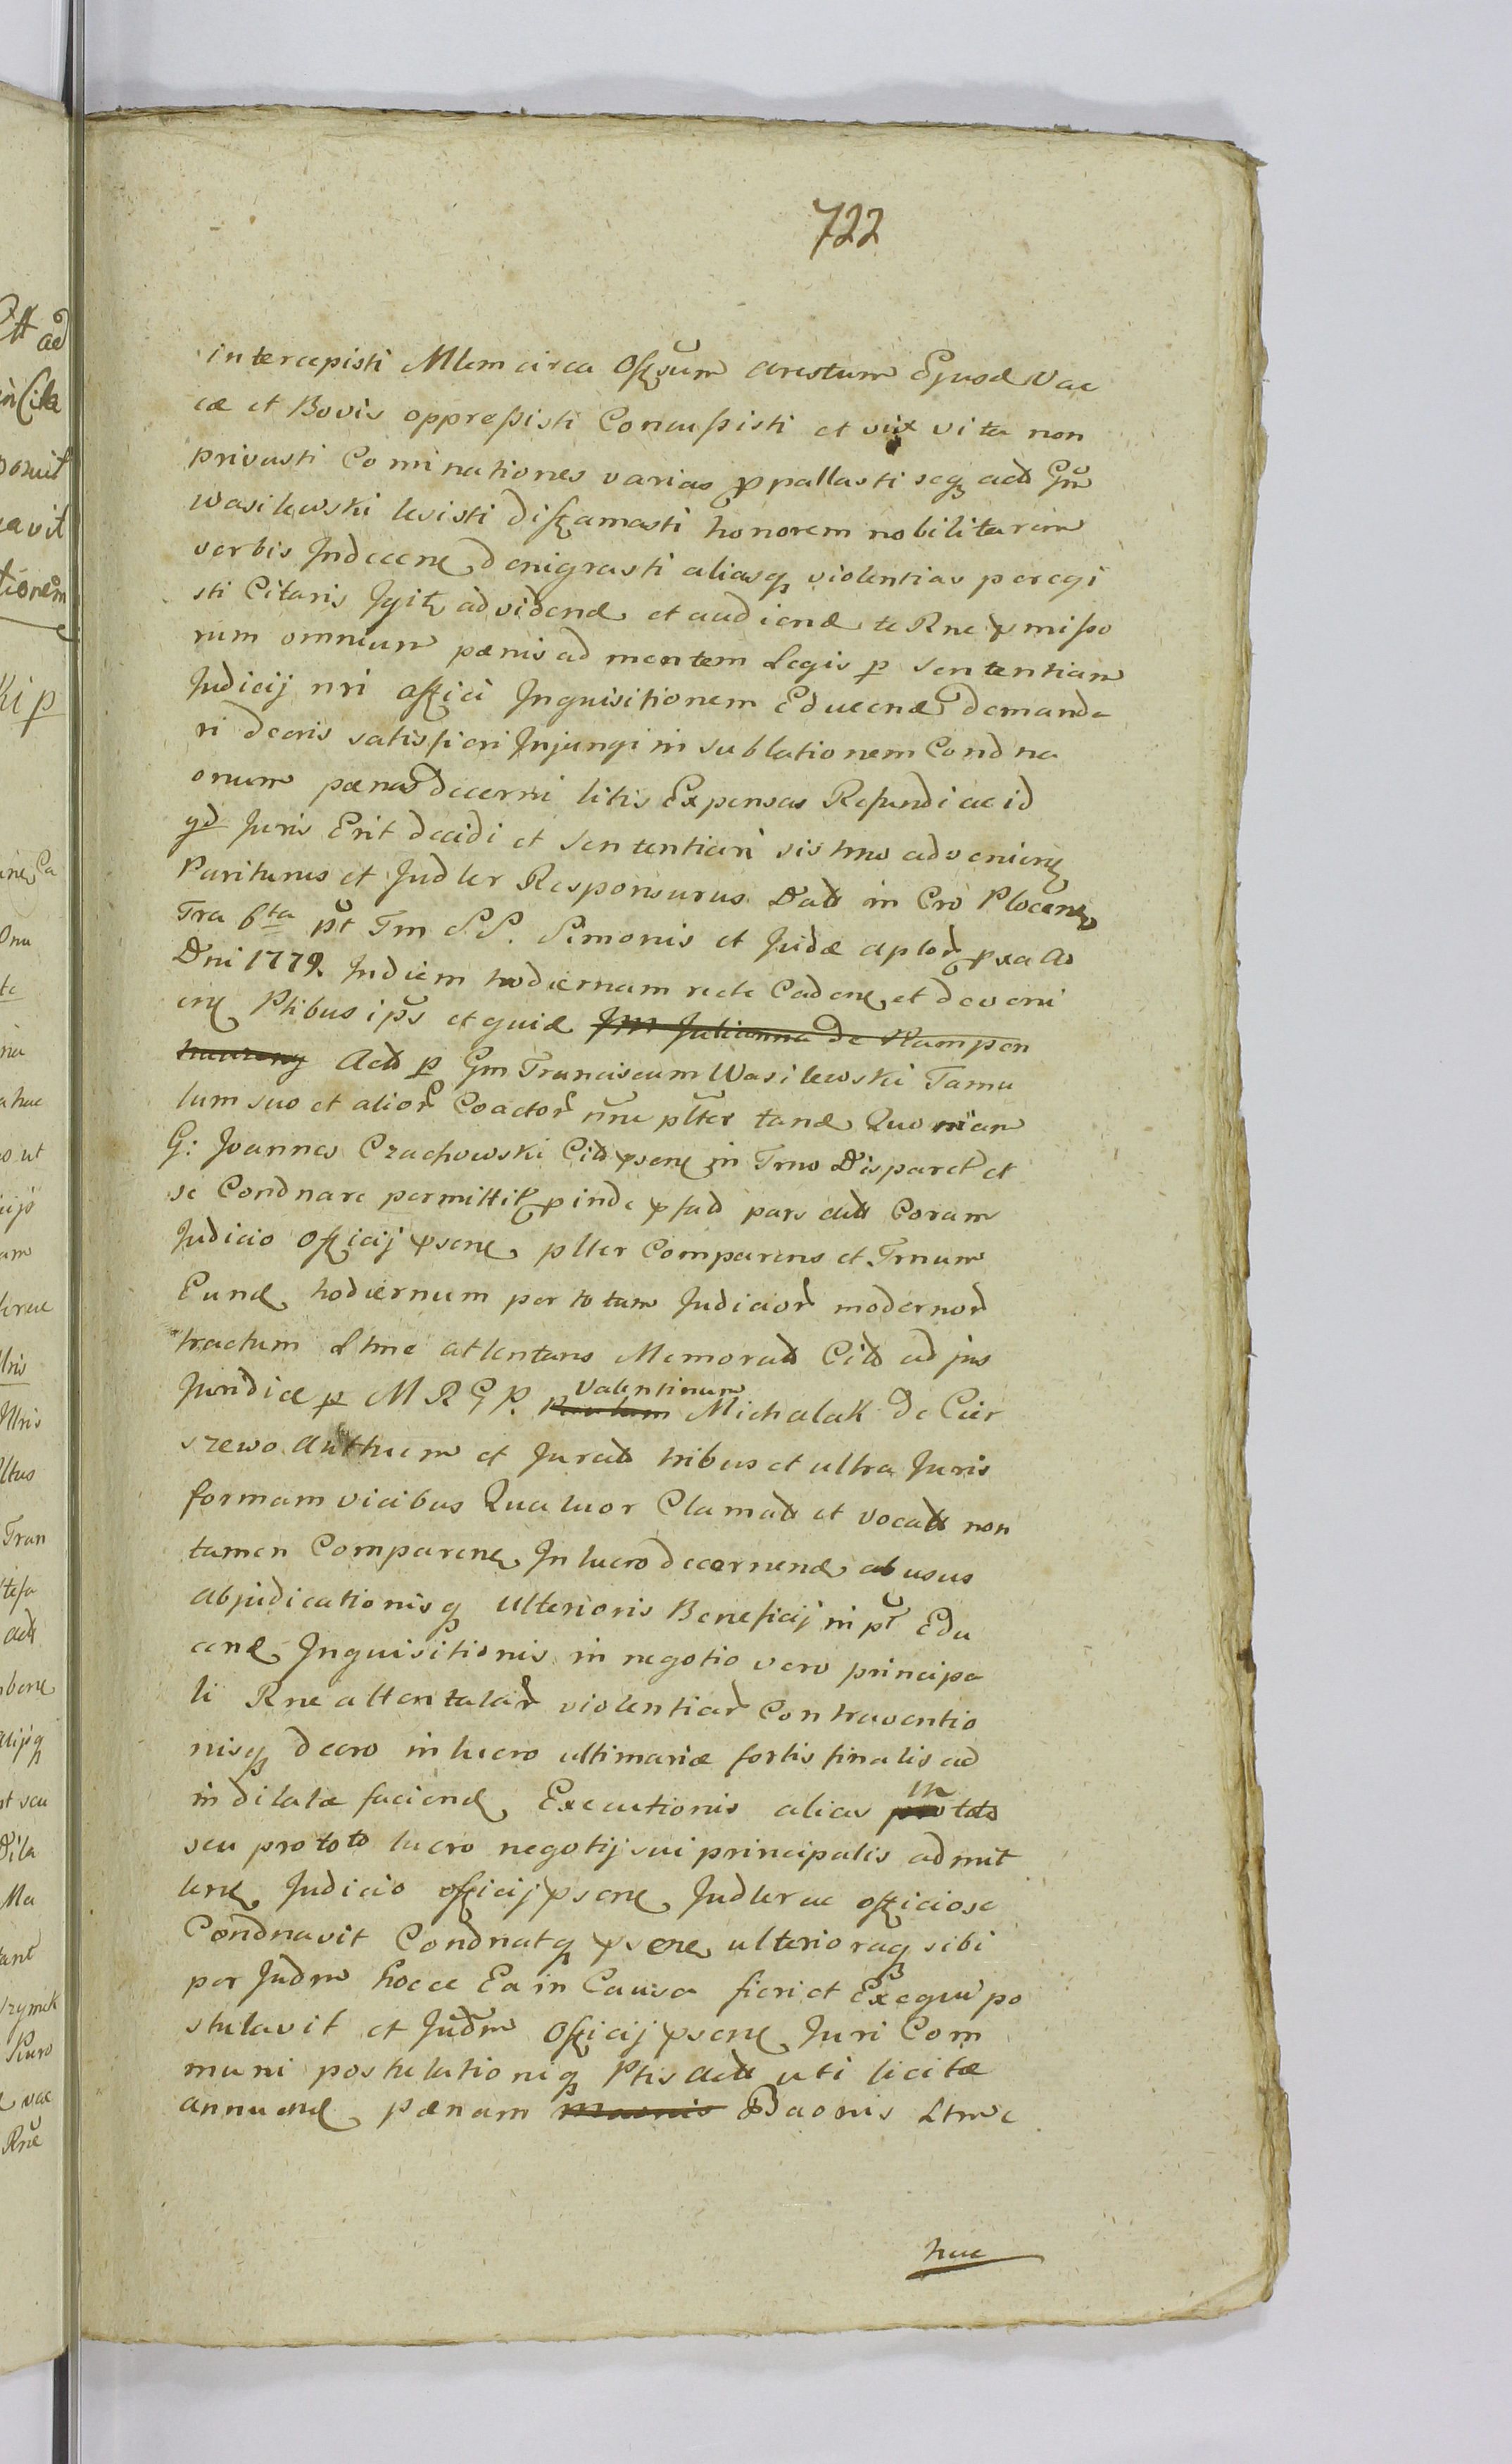 722
intercepisti Mlem circa Offsum arestum Ejusd Vac
cæ et Bovis oppressisti Concussisti et vix vita non
privasti Cominationes varias ppallasti seq actt Gm
Wasilewski lesisti diffamasti honorem nobilitarem
verbis Indecen denigrasti aliasq violentias peregi
sti Citaris Igitr ad vidend et audiend te Rne pmisso
rum omnium pænis ad mentem Legis p sententiam
Judicij nri affici Inquisitionem Educend demanda
ri decris satisfieri Injungi in sublationem Condna
onum pænas decerni litis Expensas Refundi ac id
qd Juris Erit decidi et sententiari sis tmo advenien
Pariturus et Judler Responsurus Datt in Cro Plocen
Fra 6ta pt Fm S.S. Simonis et Judæ Aplor pxa Ao
Dni 1779. Indiem hodiernam recte Caden et deveni
en Ptibus ips et quid Jm Julianna de Kampen
Actt p Gm Franciscum Wasilewski Famu
lum suo et alior Coactor nne plter tand Quoniam
G: Joannes Czachowski Citt psen in Trno Disparet et
se Condnare permittit pinde pfad pars actt Coram
Judicio Officij psen plter Comparens et Trnum
Eund hodiernum per totum Judicior modernor
tractum Ltme attentans Memoratt Citt ad jus
Juridice p M R G P. Valentinum Michalak de Cier
szewo Authum et Juratt tribus et ultra Juris
formam vicibus Quatuor Clamatt et vocatt non
tamen Comparen In lucro decernend abusus
abjudicationisq ulterioris Beneficij in pt Edu
cend Inquisitionis in negotio vero principa
li Rne attentatar violentiar Contraventio
nisq decro in lucro ultimariæ sortis finalis ad
indilate faciend Executionis alias in toto
seu pro toto lucro negotij sui principalis admit
ten Judicio officij psen Judler ac officiose
Condnavit Condnatq psen ulterioraq sibi
per Judm hocce Ea in Causa fieri et Exequi po
stulavit et Judm Officij psen Juri Com
muni postulationiq Ptis Actt uti licitæ
annuend pænam Baonis Ltme
hac